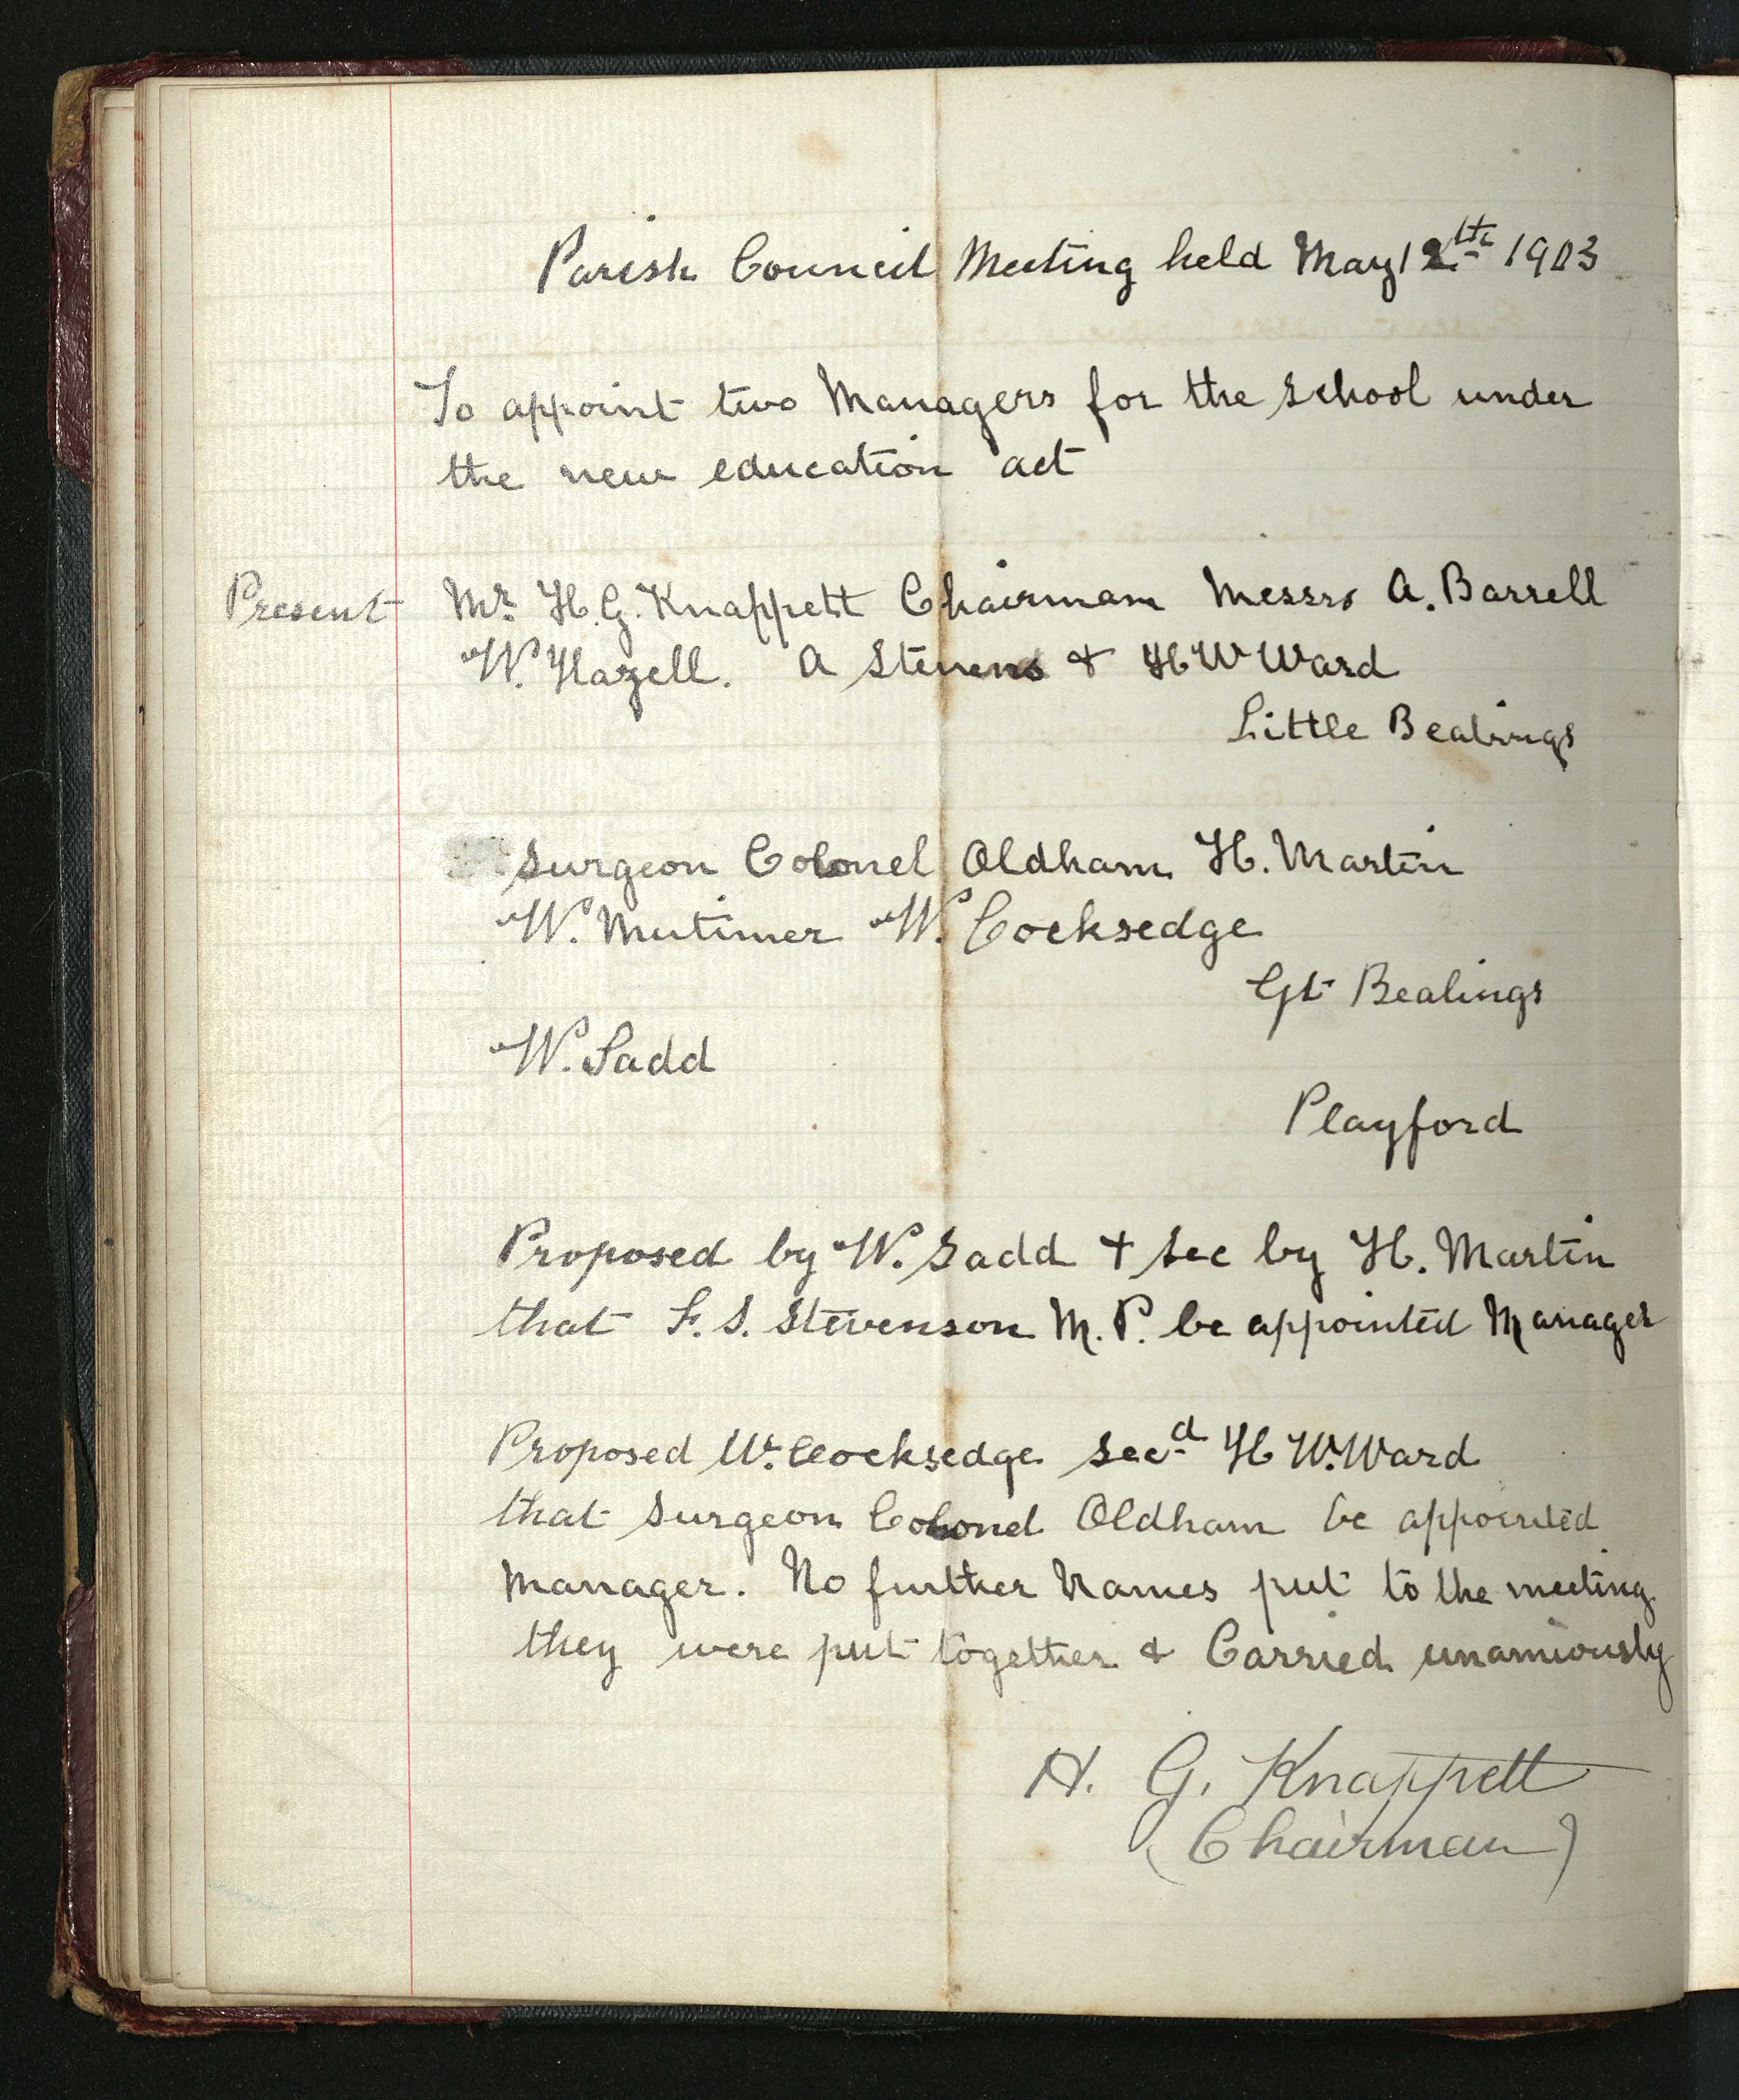 Parish Council Meeting held May 12th 1903
To appoint two Managers for the School under
the new education act
Present Mr. H. G. Knappett Chairman Messrs A. Barrell
W. Hazell. A Stevens & H W Ward
Little Bealings
Surgeon Colonel Oldham H. Martin
W. Mutimer W. Cocksedge
Gt Bealings
W. Sadd
Playford
Proposed by W. Sadd & Sec by H. Martin
that F. S. Stevenson M. P. be appointed Manager
Proposed W. Cocksedge Secd H W. Ward
that Surgeon Colonel Oldham be appointed
Manager. No further Names put to the meeting
they were put together & Carried unamiously
H. G. Knappett
(Chairman)